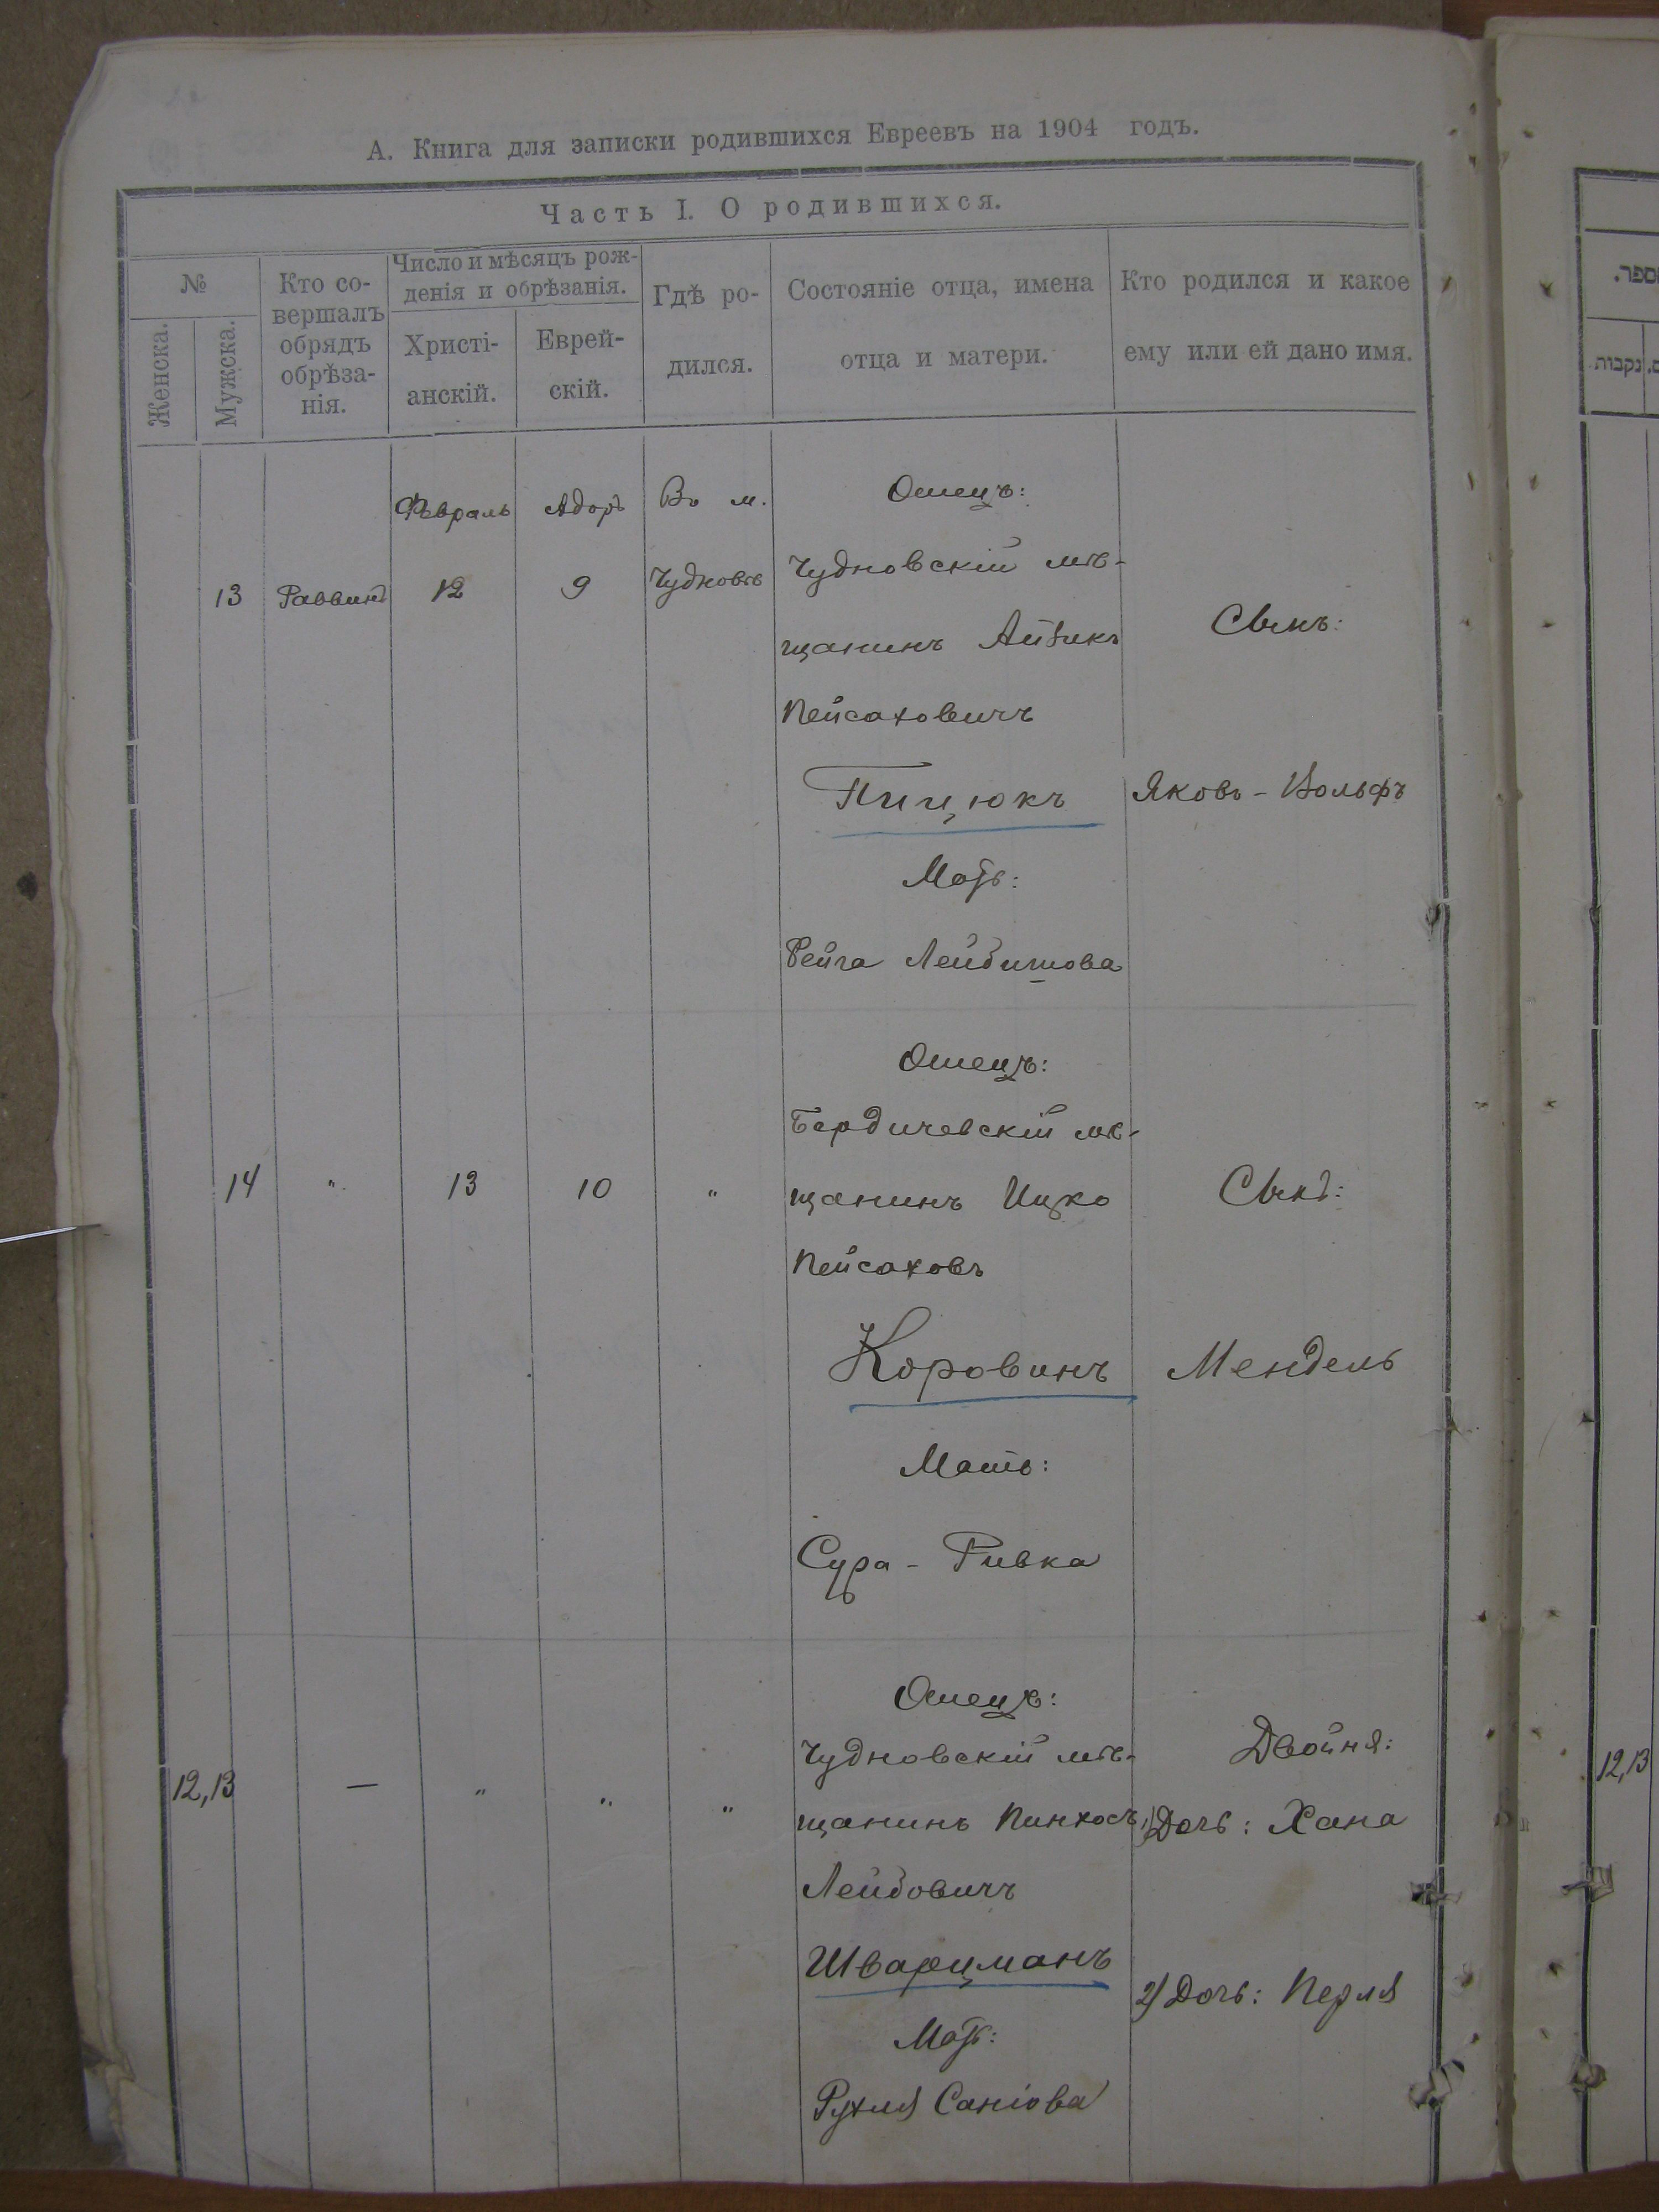 А. Книга для записки родившихся Евреевъ на 1904 годъ.
Часть I. О родившихся.
№
Женска.
Мужска.
Кто со-
вершалъ
обрядъ
обрѣза-
нія.
Число и мѣсяцъ рож-
денія и обрѣзанія.
Христі-
анскій.
Еврей-
скій.
Гдѣ ро-
дился.
Состояніе отца, имена
отца и матери.
Кто родился и какое
ему или ей дано имя.
13
Раввинъ
Февраль
12
Адоръ
9
Въ м.
Чудновѣ
Отецъ:
Чудновскій мѣ-
щанинъ Айзикъ
Пейсаховичъ
Пицюкъ
Мать:
Фейга Лейбишова
Сынъ:
Яковъ-Вольфъ
14
"
13
10
"
Отецъ:
Бердичевскій мѣ-
щанинъ Ицко
Пейсаховъ
Коровинъ
Мать:
Сура-Ривка
Сынъ:
Мендель
12,13
—
"
"
"
Отецъ:
Чудновскій мѣ-
щанинъ Пинхосъ
Лейбовичъ
Шварцманъ
Мать:
Рухля Саніова
Двойня:
1) Дочь: Хана
2) Дочь: Перля
12,13
נקבות